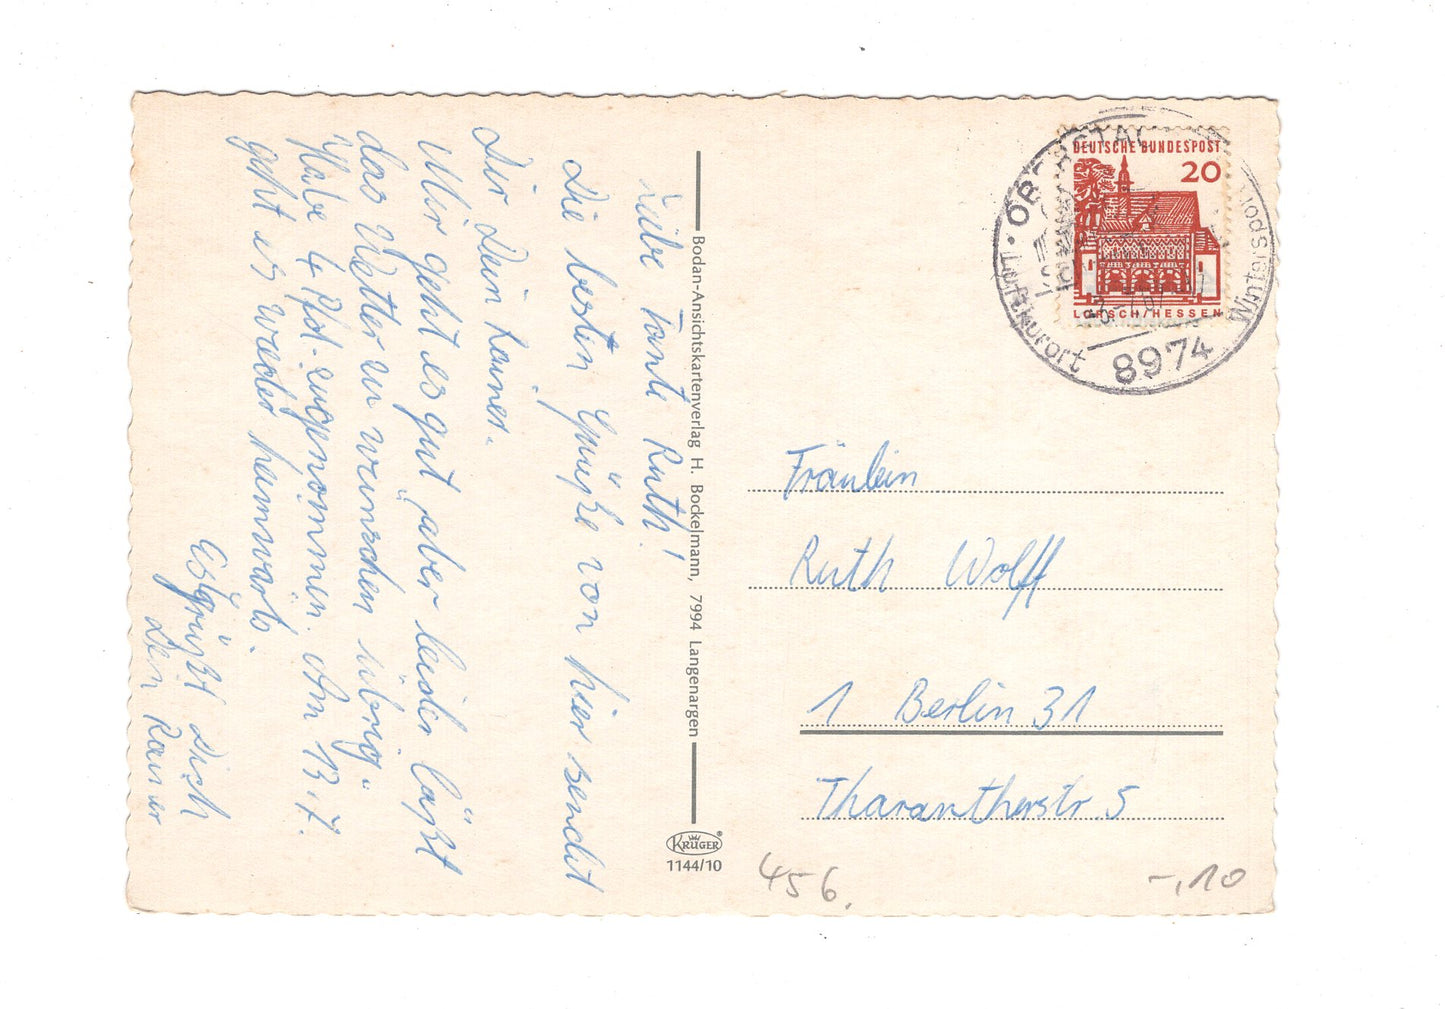 Liebe Tante Ruth!
Die besten Grüße von hier sendet
Dir Dein Rainer.
Mir geht es gut, aber leider läßt
das Wetter zu wünschen übrig.
Habe 4 Pfd. zugenommen. Am 13.7.
geht es wieder heimwärts.
Es grüßt Dich
Dein Rainer
Bodan-Ansichtskartenverlag H. Bockelmann, 7994 Langenargen
KRÜGER
1144/10
DEUTSCHE BUNDESPOST
20
LORSCH/HESSEN
Luftkurort
Wintersport
8974
Fräulein
Ruth Wolff
1 Berlin 31
Tharantherstr. 5
456.
-,10